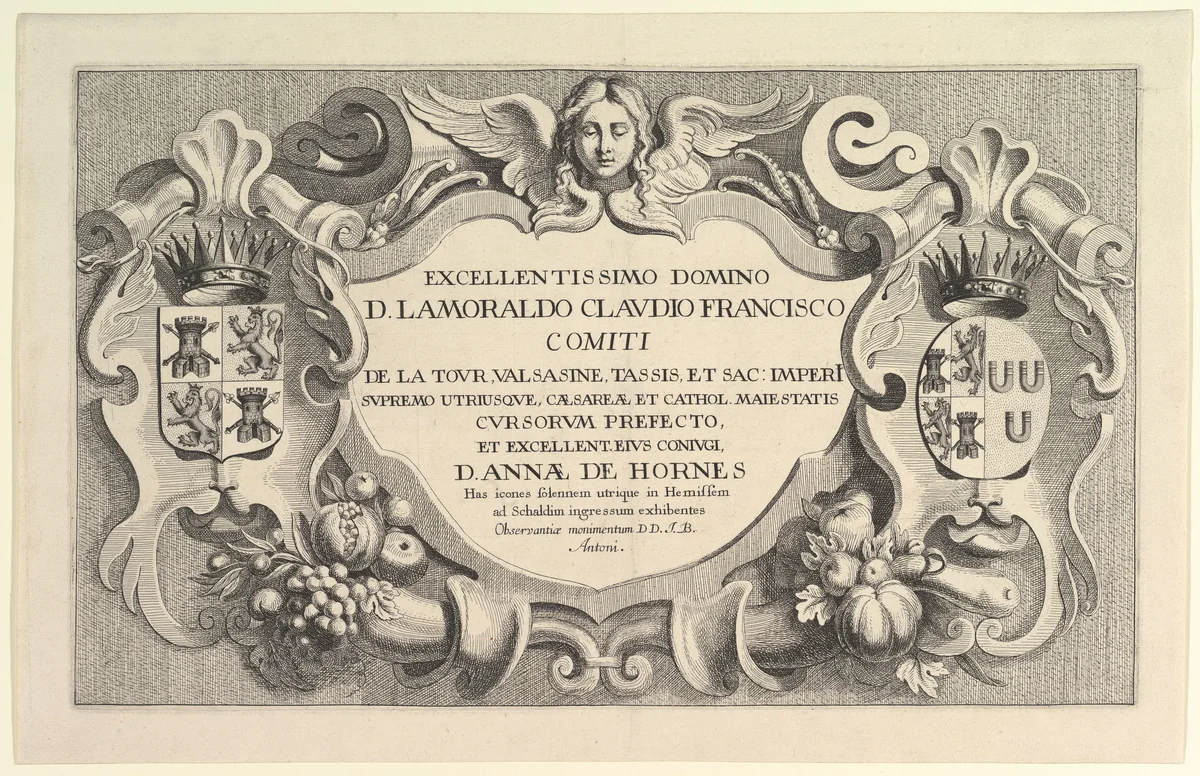 EXCELLENTISSIMO DOMINO
D. LAMORALDO CLAVDIO FRANCISCO
COMITI
DE LA TOVR, VALSASINE, TASSIS, ET SAC: IMPERI
SVPREMO UTRIUSQVE, CÆSAREÆ ET CATHOL. MAIESTATIS
CVRSORVM PREFECTO,
ET EXCELLENT. EIVS CONIVGI,
D. ANNÆ DE HORNES
Has icones ſolennem utrique in Hemiſſem
ad Schaldim ingressum exhibentes
Observantiæ monimentum D D. I. B.
Antoni.